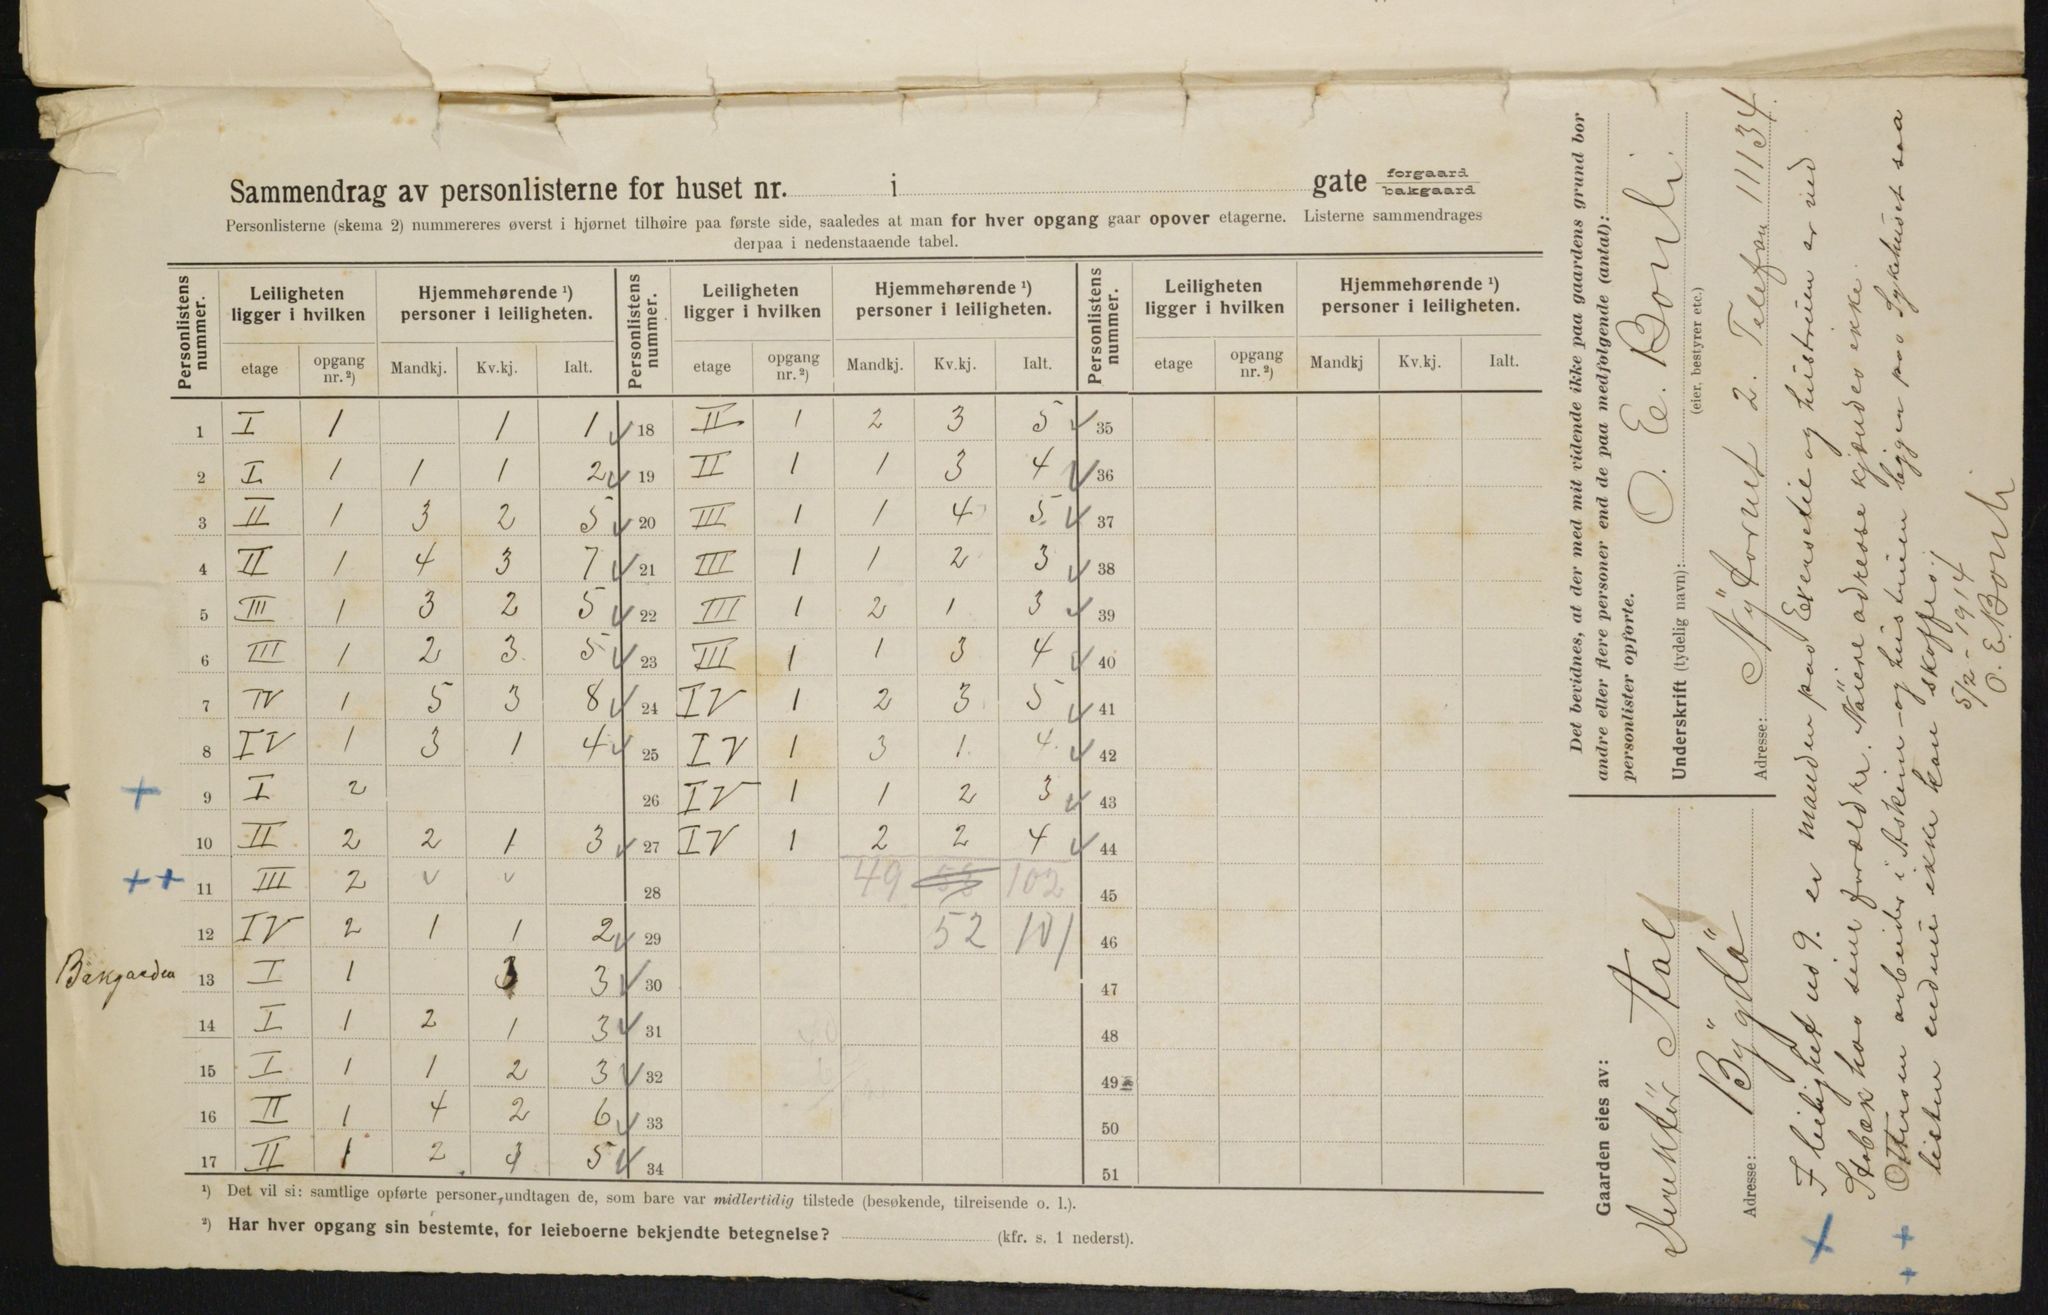 Sammendrag av personlisterne for huset nr. i gate forgaard bakgaard
Personlisterne (skema 2) nummereres øverst i hjørnet tilhøire paa første side, saaledes at man for hver opgang gaar opover etagerne. Listerne sammendrages
derpaa i nedenstaaende tabel.
Personlistens nummer. Leiligheten ligger i hvilken Hjemmehørende ¹) personer i leiligheten. Personlistens nummer. Leiligheten ligger i hvilken Hjemmehørende ¹) personer i leiligheten. Personlistens nummer. Leiligheten ligger i hvilken Hjemmehørende ¹) personer i leiligheten.
etage opgang nr. ²) Mandkj. Kv.kj. Ialt. etage opgang nr. ²) Mandkj. Kv.kj. Ialt. etage opgang nr. ²) Mandkj Kv.kj. Ialt.
1 I 1 1 1 ✓ 18 II 1 2 3 5 ✓ 35
2 I 1 1 1 2 ✓ 19 II 1 1 3 4 ✓ 36
3 II 1 3 2 5 ✓ 20 III 1 1 4 5 ✓ 37
4 II 1 4 3 7 ✓ 21 III 1 1 2 3 ✓ 38
5 III 1 3 2 5 ✓ 22 III 1 2 1 3 ✓ 39
6 III 1 2 3 5 ✓ 23 III 1 1 3 4 ✓ 40
7 IV 1 5 3 8 ✓ 24 IV 1 2 3 5 ✓ 41
8 IV 1 3 1 4 ✓ 25 IV 1 3 1 4 ✓ 42
+ 9 I 2 26 IV 1 1 2 3 ✓ 43
10 II 2 2 1 3 ✓ 27 IV 1 2 2 4 ✓ 44
++ 11 III 2 ✓ ✓ 28 49 102 45
12 IV 2 1 1 2 ✓ 29 52 101 46
Bakgaarden 13 I 1 3 3 ✓ 30 47
14 I 1 2 1 3 ✓ 31 48
15 I 1 1 2 3 ✓ 32 49
16 II 1 4 2 6 ✓ 33 50
17 II 1 2 3 5 ✓ 34 51
¹) Det vil si: samtlige opførte personer, undtagen de, som bare var midlertidig tilstede (besøkende, tilreisende o. l.).
²) Har hver opgang sin bestemte, for leieboerne bekjendte betegnelse? (kfr. s. 1 nederst).
Det bevidnes, at der med mit vidende ikke paa gaardens grund bor
andre eller flere personer end de paa medfølgende (antal):
personlister opførte.
Underskrift (tydelig navn): O. E. Bonli
(eier, bestyrer etc.)
Adresse: Nÿtorvet 2. Telefon 11134.
Gaarden eies av:
Direktör Aal
Adresse: Bÿgdö
+ I leilighet no 9. er manden paa Eversetil og hustruen er ved
Stabæk hos sine forældre. Näiere adresse kjændes ikke.
++ Ottersen arbeider i Askim og hustruen ligger paa Sykehuset saa
listen endnu ikke kan skaffes.
5/2-1914
O. E. Bonli